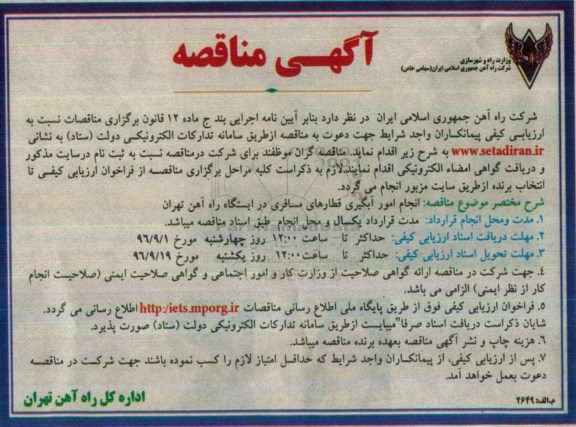 وزارت راه و شهرسازی
شرکت راه آهن جمهوری اسلامی ایران(سهامی خاص)
آگهی مناقصه
شرکت راه آهن جمهوری اسلامی ایران در نظر دارد بنابر آیین نامه اجرایی بند ج ماده ۱۲ قانون برگزاری مناقصات نسبت به
ارزیابی کیفی پیمانکاران واجد شرایط جهت دعوت به مناقصه ازطریق سامانه تدارکات الکترونیکی دولت (ستاد) به نشانی
www.setadiran.ir به شرح زیر اقدام نمایند.مناقصه گران موظفند برای شرکت درمناقصه نسبت به ثبت نام درسایت مذکور
و دریافت گواهی امضاء الکترونیکی اقدام نمایند.لازم به ذکراست کلیه مراحل برگزاری مناقصه از فراخوان ارزیابی کیفی تا
انتخاب برنده ازطریق سایت مزبور انجام می گردد.
شرح مختصر موضوع مناقصه: انجام امور آبگیری قطارهای مسافری در ایستگاه راه آهن تهران
۱. مدت ومحل انجام قرارداد: مدت قرارداد یکسال و محل انجام طبق اسناد مناقصه میباشد.
۲. مهلت دریافت اسناد ارزیابی کیفی: حداکثر تا ساعت ۱۲:۰۰ روز چهارشنبه مورخ ۹۶/۹/۱
۳. مهلت تحویل اسناد ارزیابی کیفی: حداکثر تا ساعت ۱۲:۰۰ روز یکشنبه مورخ ۹۶/۹/۱۹
۴. جهت شرکت در مناقصه ارائه گواهی صلاحیت از وزارت کار و امور اجتماعی و گواهی صلاحیت ایمنی (صلاحیت انجام
کار از نظر ایمنی) الزامی می باشد.
۵. فراخوان ارزیابی کیفی فوق از طریق پایگاه ملی اطلاع رسانی مناقصات http:/iets.mporg.ir اطلاع رسانی می گردد.
شایان ذکراست دریافت اسناد صرفا"میبایست ازطریق سامانه تدارکات الکترونیکی دولت (ستاد) صورت پذیرد.
۶. هزینه چاپ و نشر آگهی مناقصه بعهده برنده مناقصه میباشد.
۷. پس از ارزیابی کیفی، از پیمانکاران واجد شرایط که حداقل امتیاز لازم را کسب نموده باشند جهت شرکت در مناقصه
دعوت بعمل خواهد آمد.
اداره کل راه آهن تهران
م.الف: ۲۶۴۹